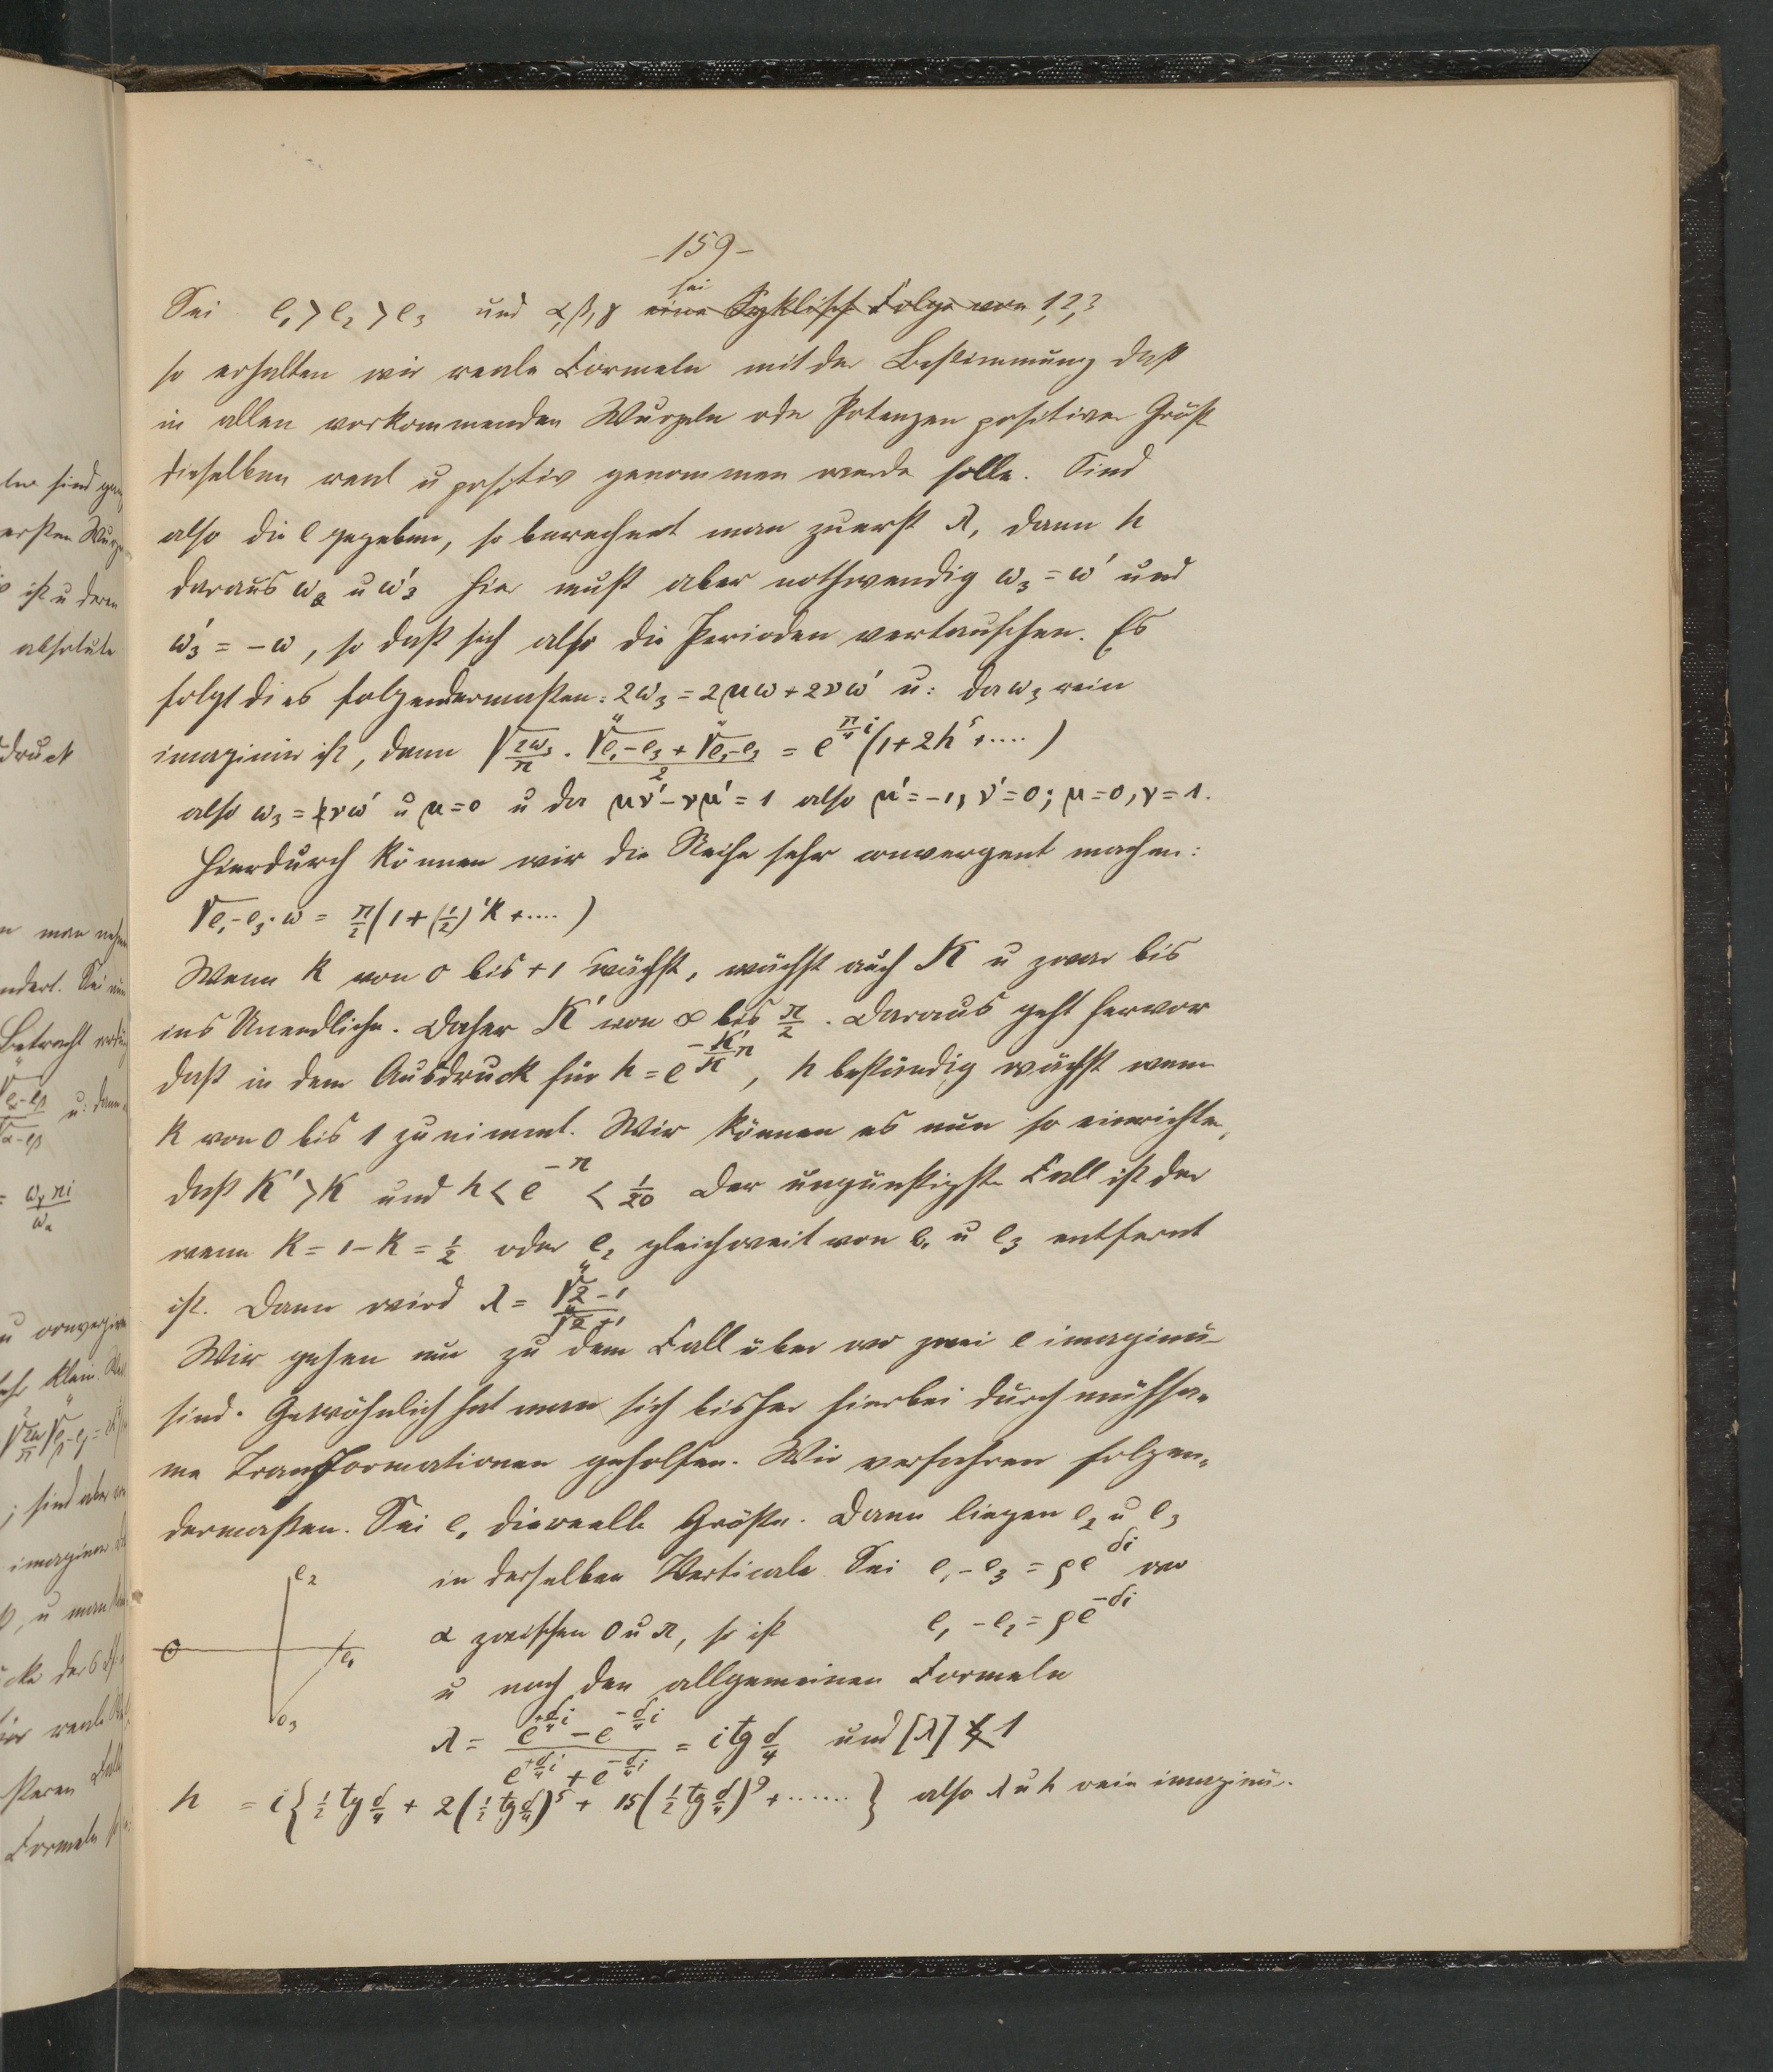 -159-
Sei e₁>e₂>e₃ und α,β,γ sei eine Cyklische Folge von 1,2,3
so erhalten wir reale Formeln mit der Bestimmung daß
in allen vorkommenden Wurzeln oder Potenzen positiver Größ
dieselben reel u positiv genommen werde solle. Sind
also die e gegeben, so berechnet man zuerst λ, dann h
daraus ω₃ u ω'₃ hier muß aber nothwendig ω₃ = ω' und
ω'₃ = -ω, so daß sich also die Perioden vertauschen. Es
folgt dies folgendermaßen: 2ω₃ = 2μω + 2νω' u: da ω₃ rein
imaginär ist, dann √(2ω₃/π) · (∜(e₁-e₃) + ∜(e₂-e₃))/2 = e^(π/4 i) (1+2h⁴+....)
also ω₃ = νω' u μ=0 u da μν'-νμ' = 1 also μ'=-1, ν'=0; μ=0, ν=1.
Hierdurch können wir die Reihe sehr convergent machen:
√(e₁-e₃)·ω = π/2 (1+(1/2)²k+....)
Wenn k von 0 bis +1 wächst, wächst auch K u zwar bis
ins Unendliche. Daher K' von ∞ bis π/2. Daraus geht hervor
daß in dem Ausdruck für h = e^(-K'/K π), h beständig wächst wenn
k von 0 bis 1 zunimmt. Wir können es nun so einrichte,
daß K' > K und h < e^(-π) < 1/20 Der ungünstigste Fall ist der
wenn k = 1-k = 1/2 oder e₂ gleichweit von e₁ u e₃ entfernt
ist. Dann wird λ = (∜2 - 1)/(∜2 + 1)
Wir gehen nun zu dem Fall über wo zwei e imaginär
sind. Gewöhnlich hat man sich bisher hierbei durch mühsa-
me Transformationen geholfen. Wir verfahren folgen-
dermaßen. Sei e₁ die reelle Größe. Dann liegen e₂ u e₃
in derselben Verticale. Sei e₁-e₃ = ρe^(αi) wo
α zwischen 0 u π, so ist e₁-e₂ = ρe^(-αi)
u nach den allgemeinen Formeln
e₂
0
e₁
e₃
λ = (e^(+α/4 i) - e^(-α/4 i))/(e^(+α/4 i) + e^(-α/4 i)) = i tg α/4 und [λ] < 1
h = i{1/2 tg α/4 + 2(1/2 tg α/4)⁵ + 15(1/2 tg α/4)⁹ + ......} also λ u h rein imaginär.